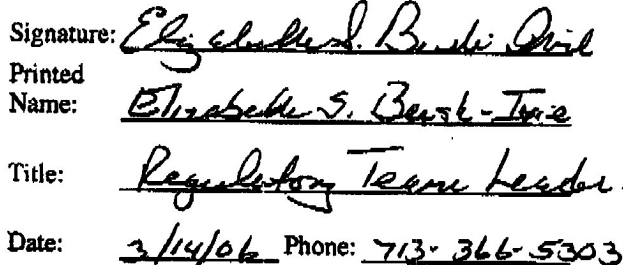 Signature: Elizabeth S. Bush-Ivie
Printed
Name: Elizabeth S. Bush-Ivie
Title: Regulatory Team Leader
Date: 3/14/06 Phone: 713-366-5303